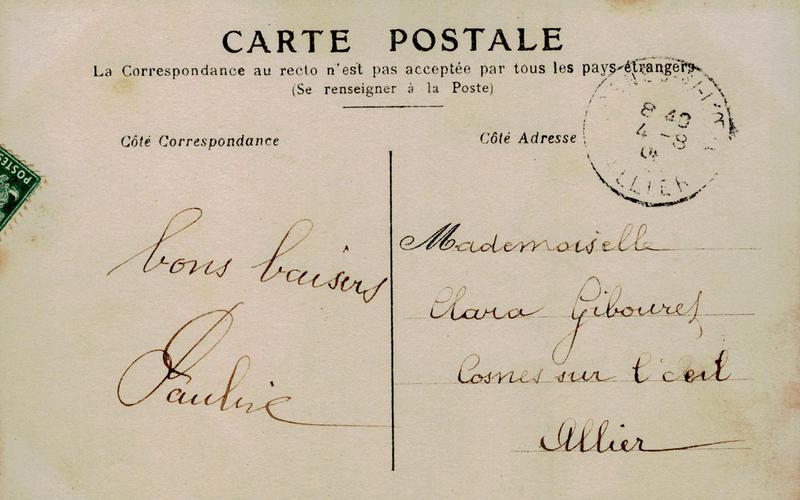 CARTE POSTALE
La Correspondance au recto n'est pas acceptée par tous les pays étrangers
(Se renseigner à la Poste)
Côté Correspondance
Côté Adresse
8 40
4 - 8
ALLIER
POSTES
bons baisers
Pauline
Mademoiselle
Clara Gibouret
Cosnes sur l'œil
Allier